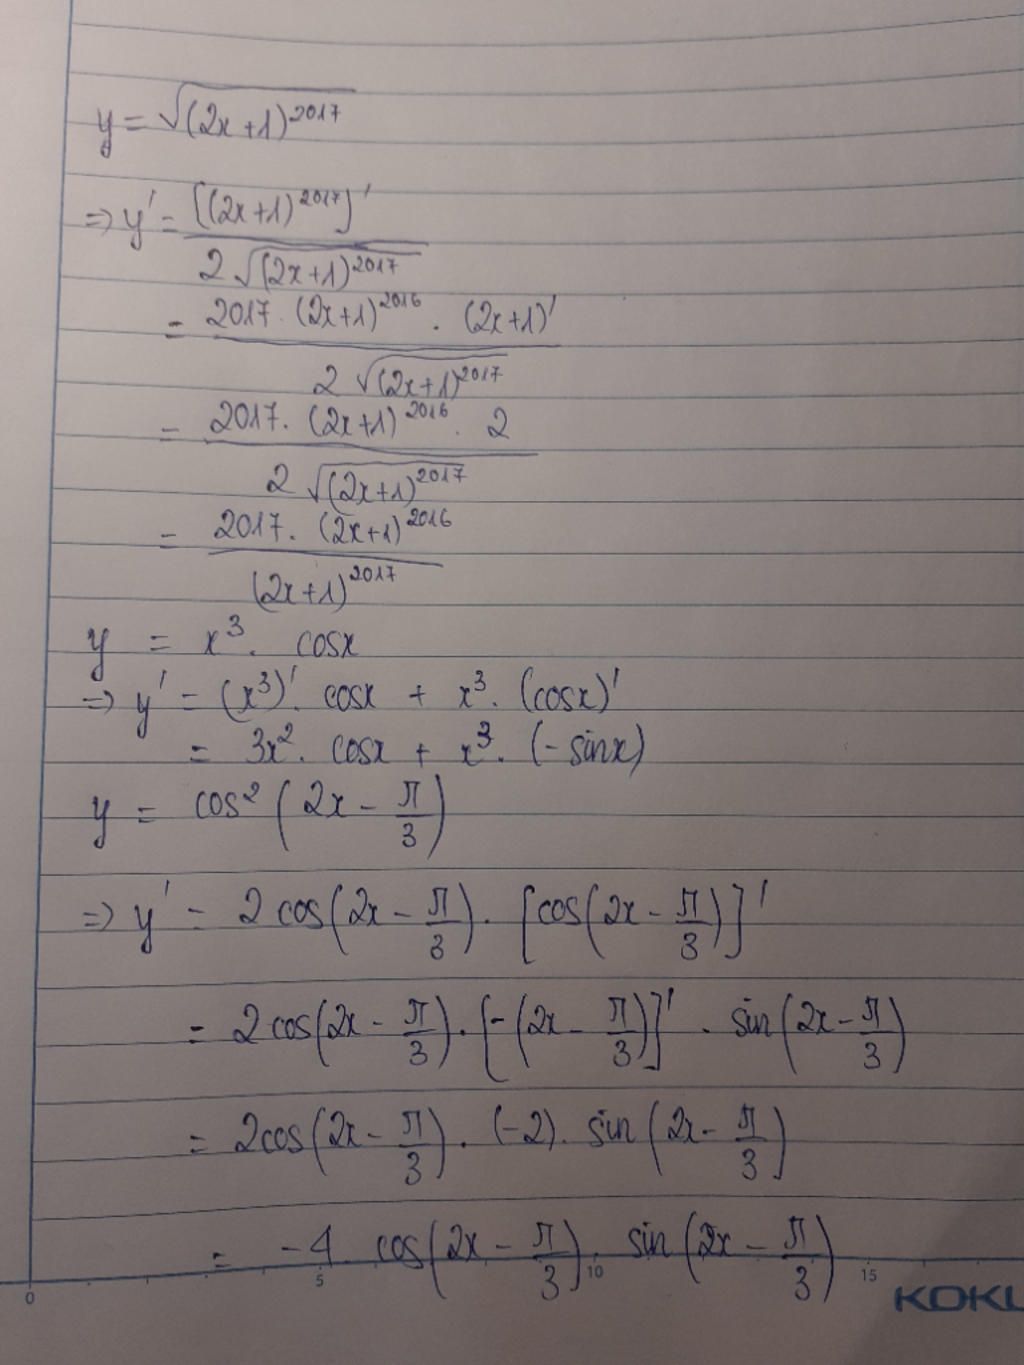 y = √(2x+1)²⁰¹⁷
⇒ y' = [(2x+1)²⁰¹⁷]' / 2√(2x+1)²⁰¹⁷
= 2017 . (2x+1)²⁰¹⁶ . (2x+1)' / 2√(2x+1)²⁰¹⁷
= 2017. (2x+1)²⁰¹⁶ . 2 / 2√(2x+1)²⁰¹⁷
= 2017. (2x+1)²⁰¹⁶ / (2x+1)²⁰¹⁷
y = x³. cosx
⇒ y' = (x³)'. cosx + x³. (cosx)'
= 3x². cosx + x³. (-sinx)
y = cos² (2x - π/3)
⇒ y' = 2cos(2x - π/3). [cos(2x - π/3)]'
= 2cos(2x - π/3). [-(2x - π/3)]' . sin(2x - π/3)
= 2cos(2x - π/3). (-2). sin(2x - π/3)
= -4 cos(2x - π/3). sin(2x - π/3)
0 5 10 15
KOKU